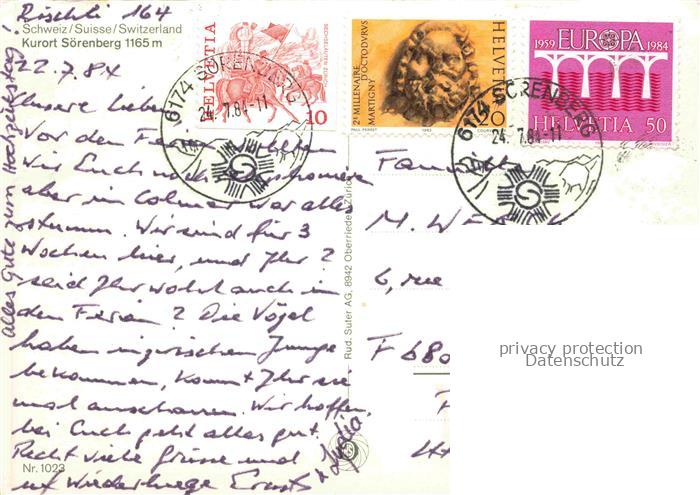 Rischli 164
Schweiz/Suisse/Switzerland
Kurort Sörenberg 1165 m
22.7.84
Unsere Lieben
Vor den Ferien
wir Euch noch
aber in Colmar war alles
stumm. Wir sind für 3
Wochen hier, und Ihr?
seid Ihr wohl auch in
den Ferien? Die Vögel
haben inzwischen Junge
bekommen, kommt Ihr sie
mal anschauen. Wir hoffen,
bei Euch geht alles gut.
Recht viele Grüsse und
auf Wiederluege Ernst
+ Lydia
Nr. 1023
alles Gute zum Hochzeitstag!
Rud. Suter AG, 8942 Oberrieden-Zürich
HELVETIA
SECHSELÄUTEN ZÜRICH
10
6174 SÖRENBERG
24.7.84-11
2e MILLENAIRE
D'OCTODVRVS
MARTIGNY
HELVETIA
20
PAUL PERRET
1983
COURVOISIER
1959 EUROPA 1984
HELVETIA 50
6174 SÖRENBERG
24.7.84-11
Famille
M. W
6, rue
F 680
privacy protection
Datenschutz